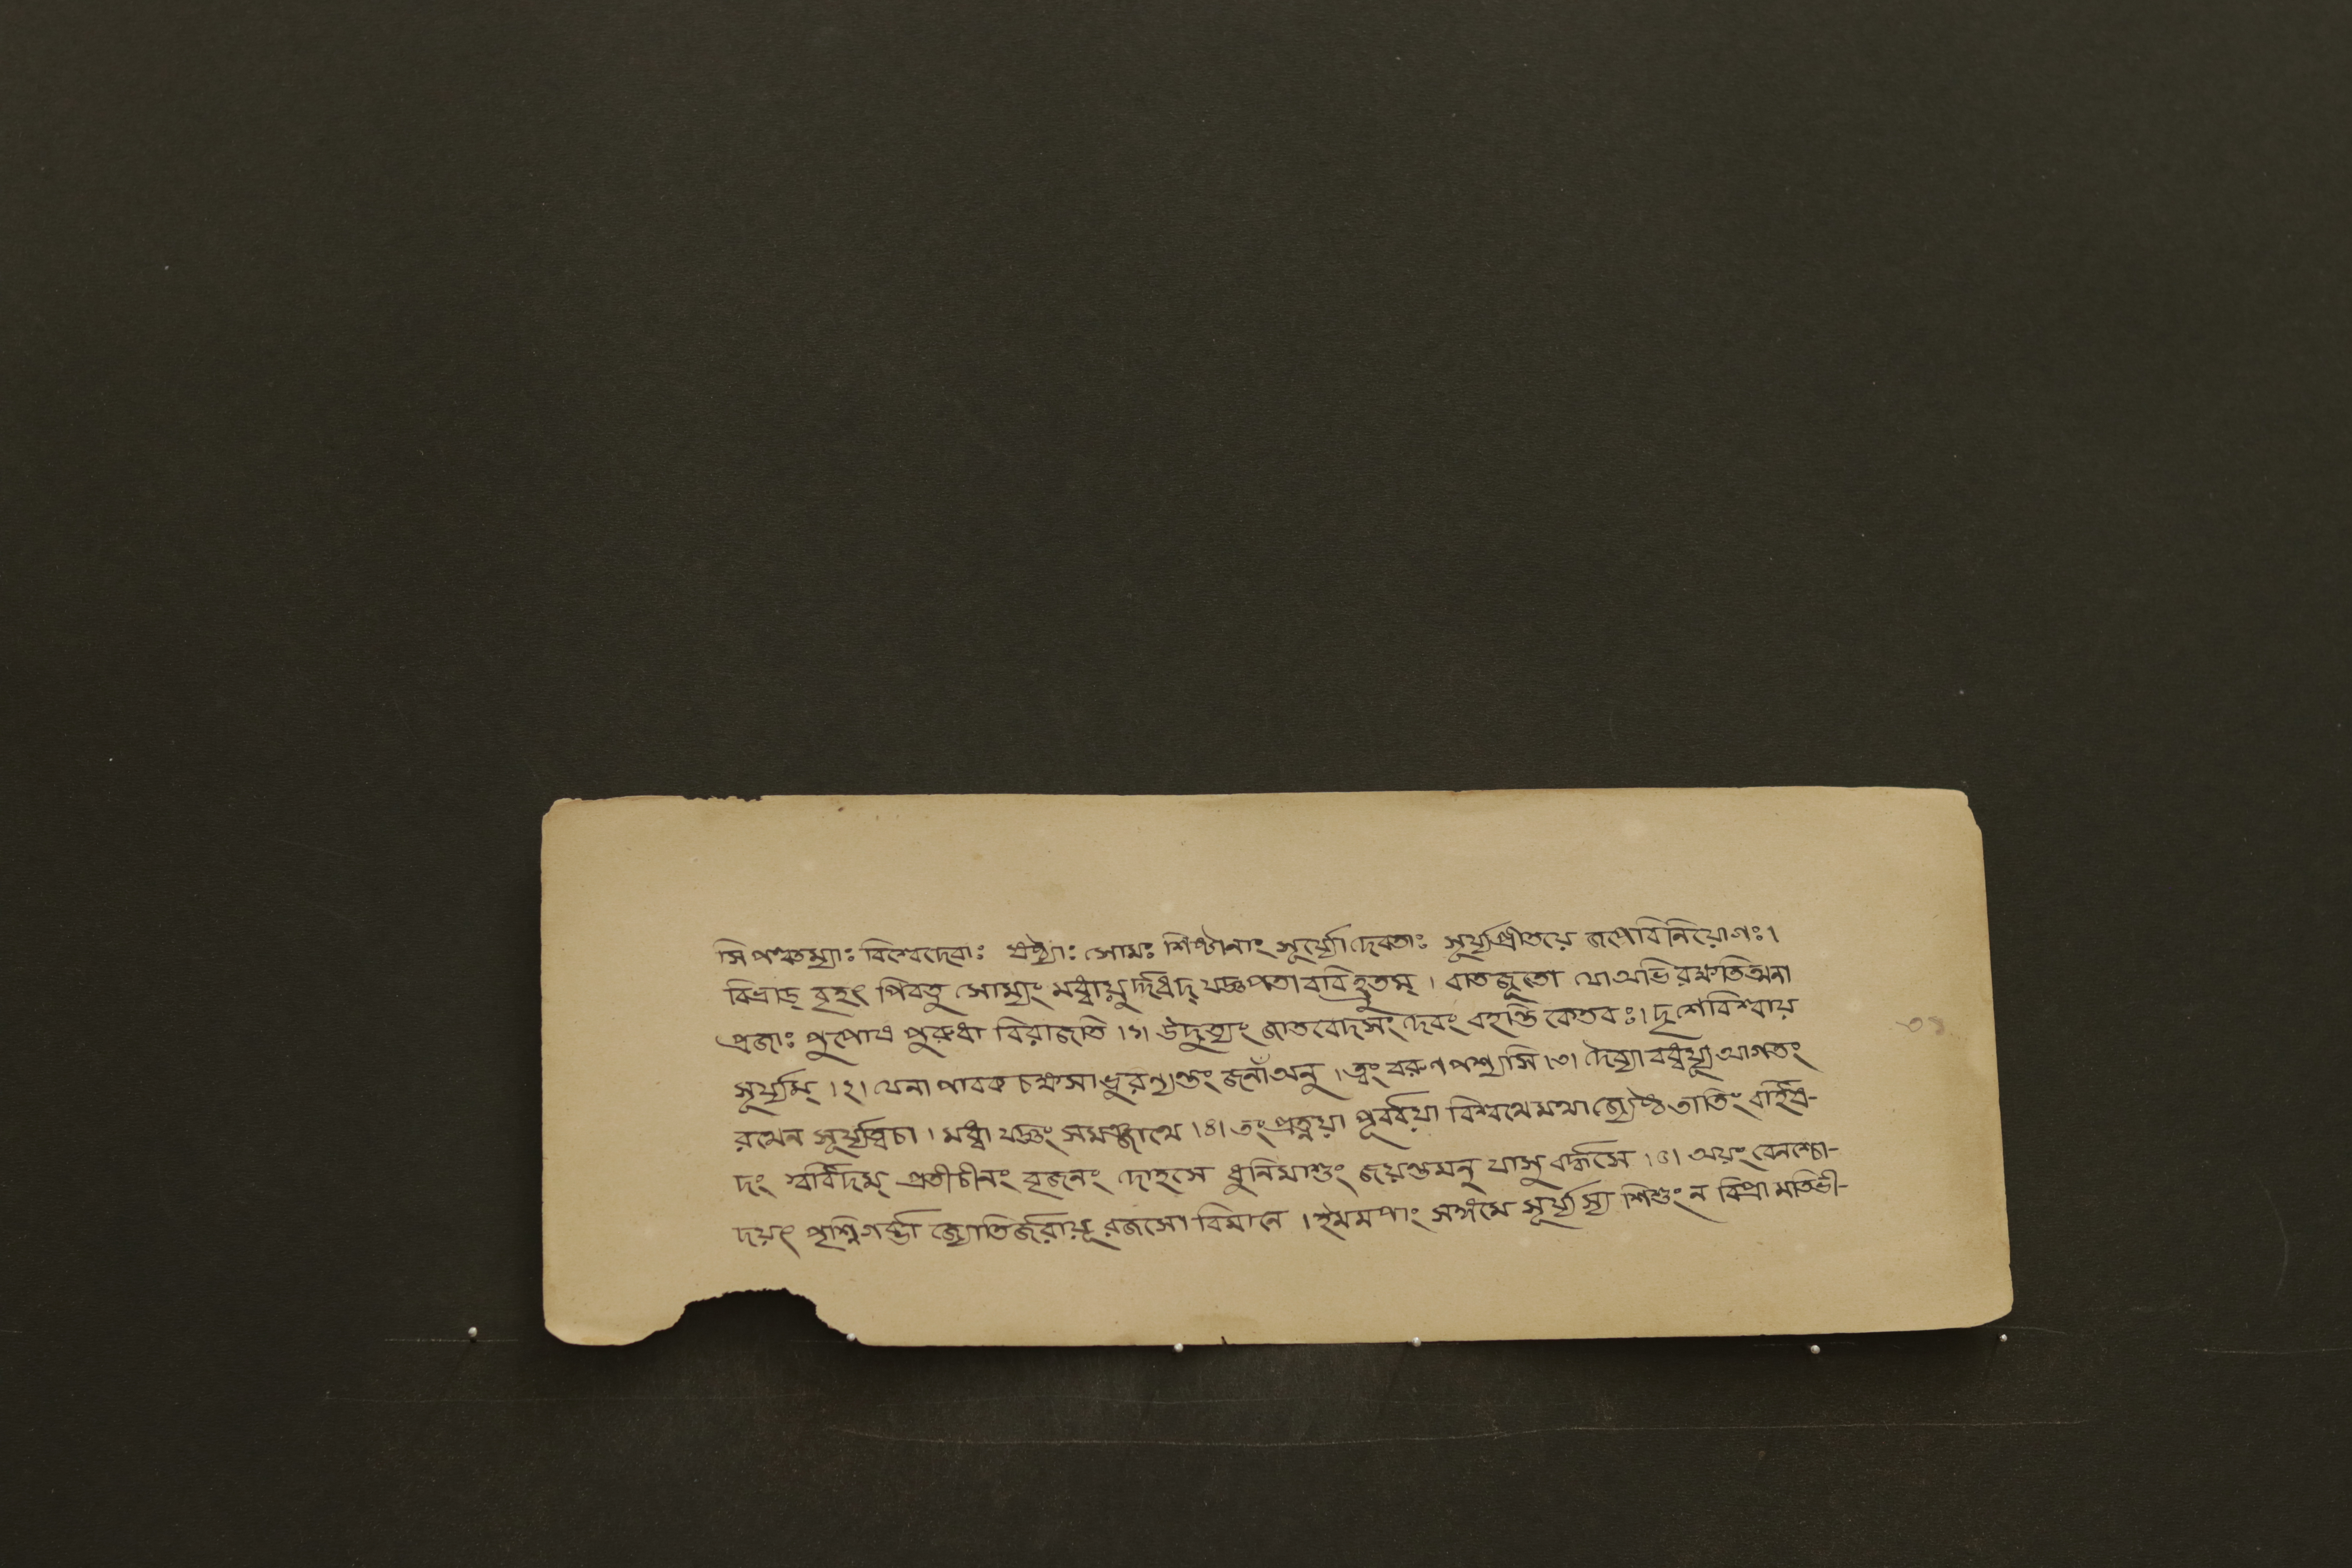 সি পঞ্চম্যাঃ বিশ্বেদেবাঃ ষষ্ঠ্যাঃ সোমঃ শিষ্টানাং সূর্য্যোদেবতাঃ সূর্য্যপ্রীতয়ে জপেবিনিয়োগঃ।
বিভ্রাড্ বৃহৎ পিবতু সোম্যং মধ্বায়ুর্দ্দধদ্ যজ্ঞপতাববিহ্রুতম্। বাতজূতো যো অভিরক্ষতিত্মনা
প্রজাঃ পুপোষ পুরুধা বিরাজতি।১। উদুত্যং জাতবেদসং দেবং বহন্তি কেতবঃ। দৃশেবিশ্বায়
সূর্য্যম্।২। যেনা পাবক চক্ষসা ভুরণ্যন্তং জনাঁ অনু। ত্বং বরুণ পশ্যসি।৩। দৈব্যাবধ্বর্য্যূ আগতং
রথেন সূর্য্যত্বচা। মধ্বা যজ্ঞং সমঞ্জাথে।৪। তং প্রত্নয়া পূর্ব্বয়া বিশ্বথেমথা জ্যেষ্ঠতাতিং বর্হিষ-
দং স্বর্বিদম্ প্রতীচীনং বৃজনং দোহসে ধুনিমাশুং জয়ন্তমনু যাসু বর্দ্ধসে।৫। অয়ং বেনশ্চো-
দয়ৎ পৃশ্নিগর্ব্ভা জ্যোতির্জরায়ূ রজসো বিমানে। ইমমপাং সঙ্গমে সূর্য্যস্য শিশুং ন বিপ্রা মতিভী-